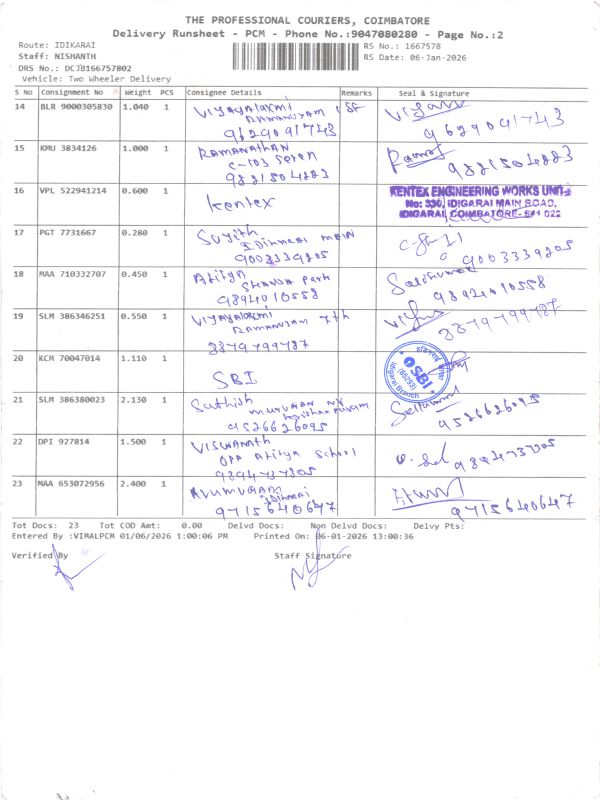 THE PROFESSIONAL COURIERS, COIMBATORE
Delivery Runsheet - PCM - Phone No.:9047080280 - Page No.:2
Route: IDIKARAI
RS No.: 1667578
Staff: NISHANTH
RS Date: 06-Jan-2026
DRS No.: DCJ8166757802
Vehicle: Two Wheeler Delivery
S No Consignment No Weight PCS Consignee Details Remarks Seal & Signature
14 BLR 9000305830 1.040 1 Vijayalaxmi
Ramanujam
9629091743 9629091743
15 KMU 3834126 1.000 1 Ramanathan
C-103 Seren
9821504223 9821504223
16 VPL 522941214 0.600 1 Kentex
KENTEX ENGINEERING WORKS UNIT
No: 336, IDIGARAI MAIN ROAD,
IDIGARAI, COIMBATORE- 641 022
17 PGT 7731667 0.280 1 Sujith
IDIKARAI MAIN
9003339205 9003339205
18 MAA 710332707 0.450 1 Aditya
Sharda Park
9894010558 9894010558
19 SLM 386346251 0.550 1 Vijayalaxmi
Ramanujam 7th
8879799787 8879799787
20 KCM 70047014 1.110 1 SBI
SBI
Idigarai Branch
21 SLM 386380023 2.130 1 Sathish
Murugan
9526626095 9526626095
22 DPI 927814 1.500 1 Viswanath
OPP Aditya School
9894737205 9894737205
23 MAA 653072956 2.400 1 Arumugam
Idikarai
9715640647 9715640647
Tot Docs: 23 Tot COD Amt: 0.00 Delvd Docs: Non Delvd Docs: Delvy Pts:
Entered By :VIMALPCM 01/06/2026 1:00:06 PM Printed On: 06-01-2026 13:00:36
Verified By Staff Signature